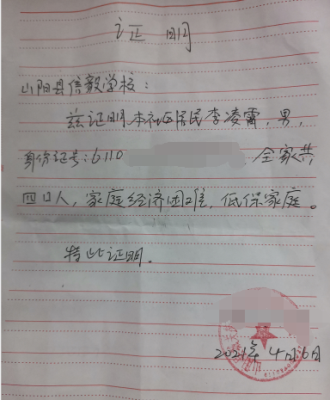 证明
山阳县信毅学校：
兹证明本社区居民李凌霄，男，
身份证号：6110 全家共
四口人，家庭经济困难，低保家庭。
特此证明.
2021年4月6日